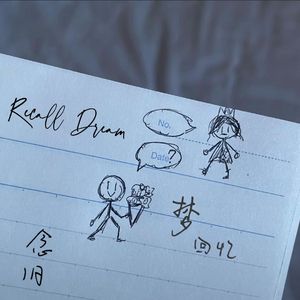 Recall Dream
No.
Date?
梦
回忆
念
旧